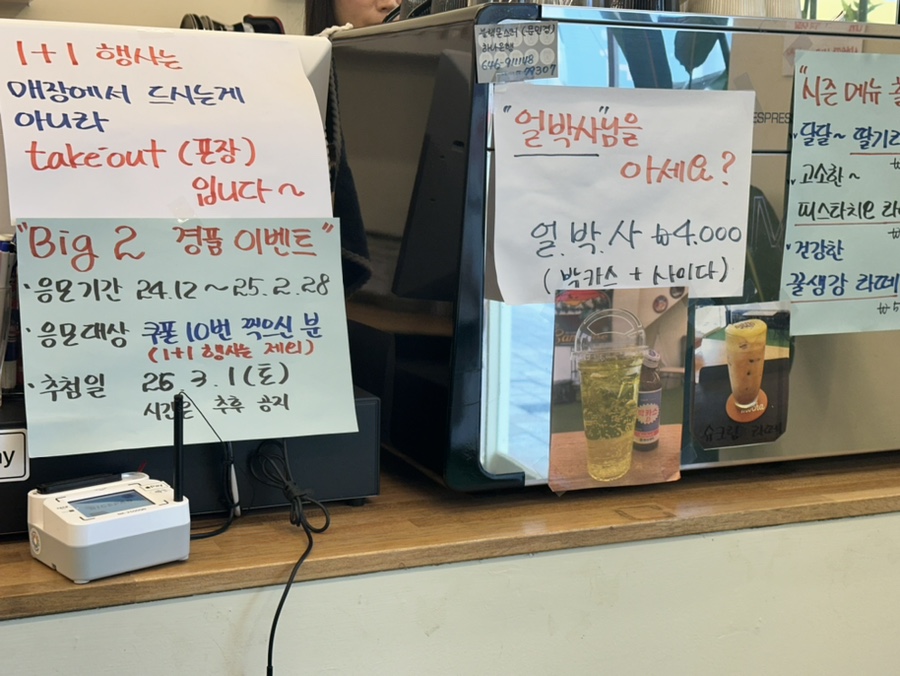 1+1 행사는
매장에서 드시는게
아니라
take-out (포장)
입니다~
"Big 2 경품 이벤트"
·응모기간 24.12 ~ 25.2.28
·응모대상 쿠폰 10번 찍으신 분
(1+1 행사는 제외)
·추첨일 25. 3. 1 (토)
시간은 추후 공지
하나은행
"얼박사"님을
아세요?
얼.박.사 ₩4.000
(박카스 + 사이다)
박카스
슈크림 라떼
ESPRES
"시즌 메뉴
달달~ 딸기라
고소한~
피스타치오 라
건강한
꿀생강 라떼
ay